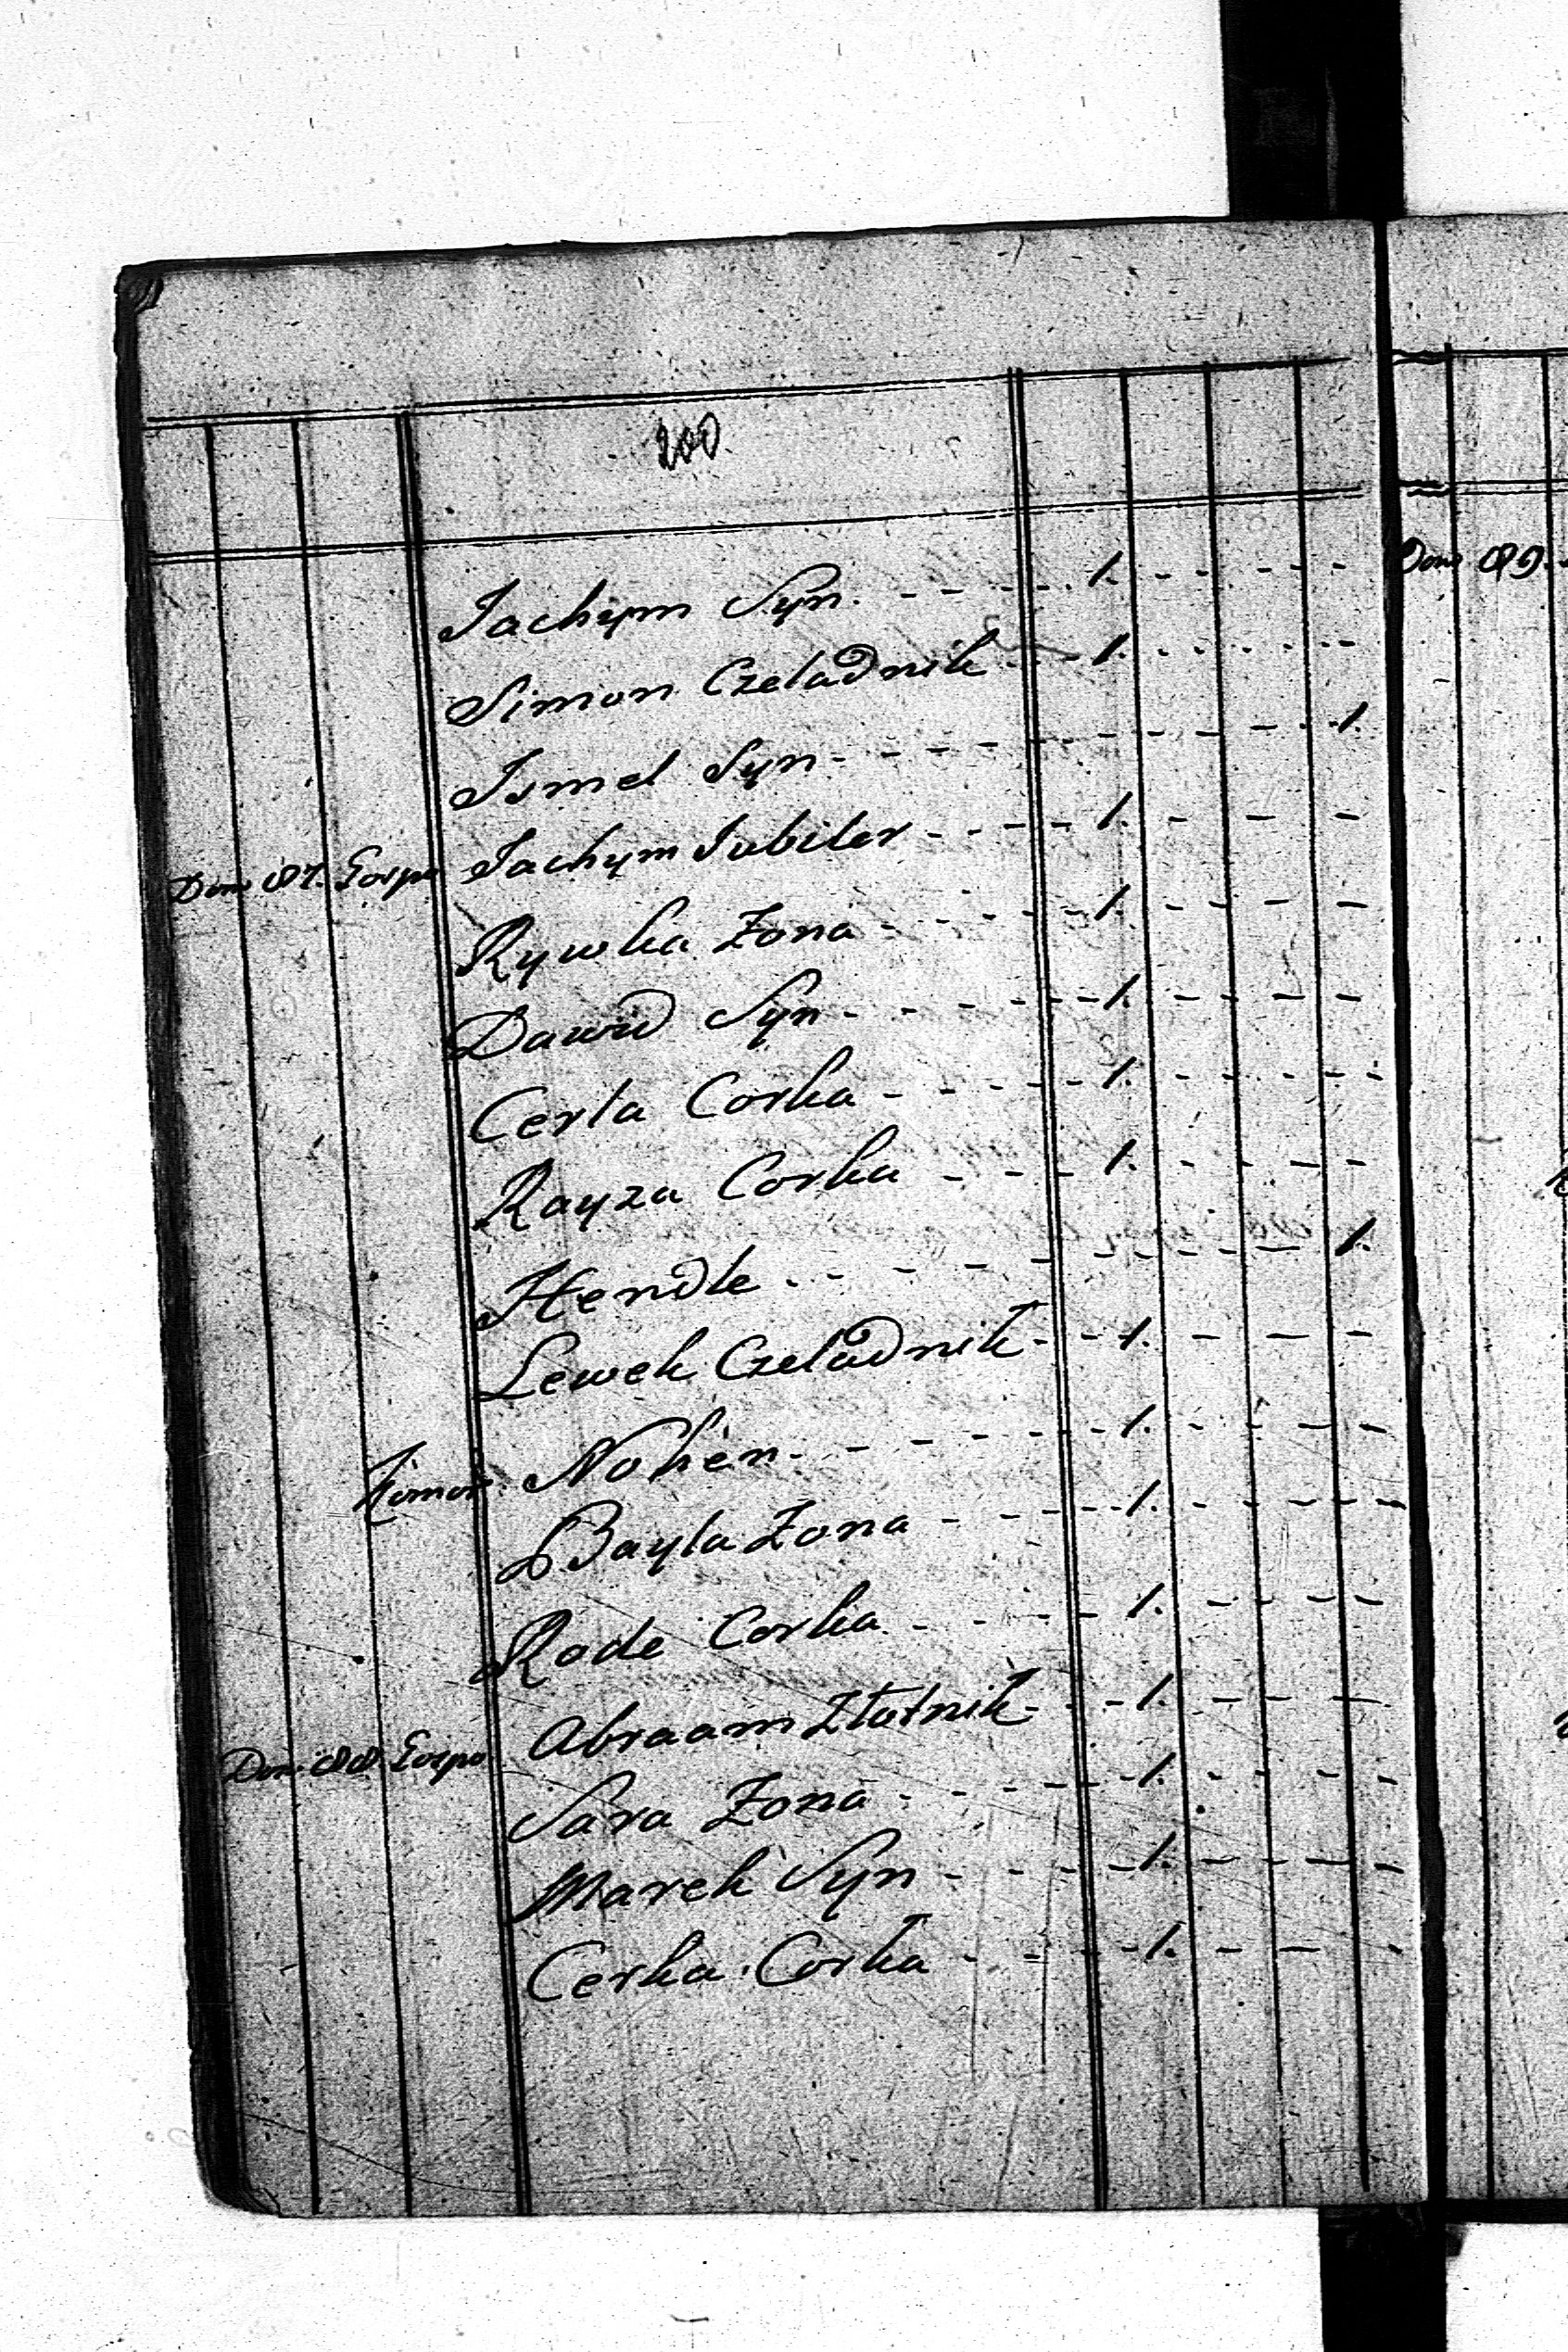 200
Jachym Syn. 1.
Simon Czeladnik 1.
Ismel Syn 1.
Dom 87. Gospo Jachym Jubiler 1.
Rywka Zona 1.
Dawid Syn 1.
Cerla Corka 1.
Rayza Corka 1.
Hendle 1.
Lewek Czeladnik 1.
Komor. Nohen 1.
Bayla Zona 1.
Rode Corka 1.
Dom 88. Gospo Abraam Złotnik 1.
Sara Zona 1.
Marek Syn 1.
Cerka Corka 1.
Dom 89.